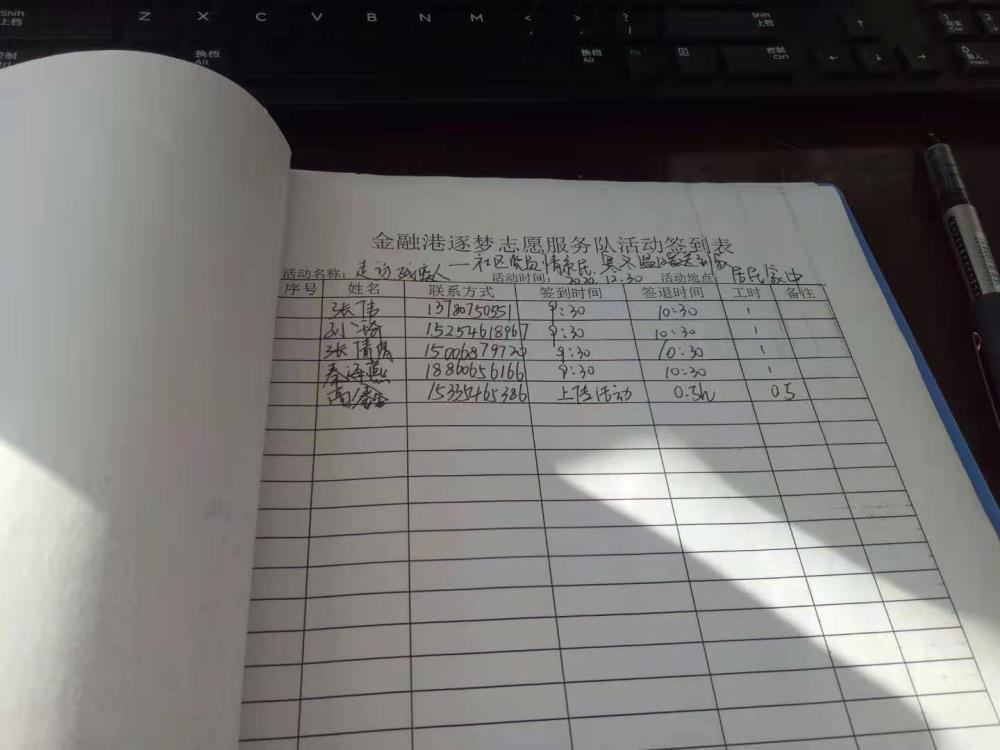 Shift 上档 Z X C V B N M < , > . ? / Shift 上档 ↑ 1 End
控制 换档 Alt 换档 Alt Fn 控制 Ctrl ← ↓ → 0 Insert
金融港逐梦志愿服务队活动签到表
活动名称: 走访残疾人 一社区党员情系民. 寒冬温暖送到家
活动时间 2020.12.30 活动地点: 居民家中
序号 姓名 联系方式 签到时间 签退时间 工时 备注
张伟 13780750551 9:30 10:30 1
15254618967 9:30 10:30 1
张倩倩 15006879720 9:30 10:30 1
秦海燕 18860656166 9:30 10:30 1
15335465386 上传活动 0.5h 0.5